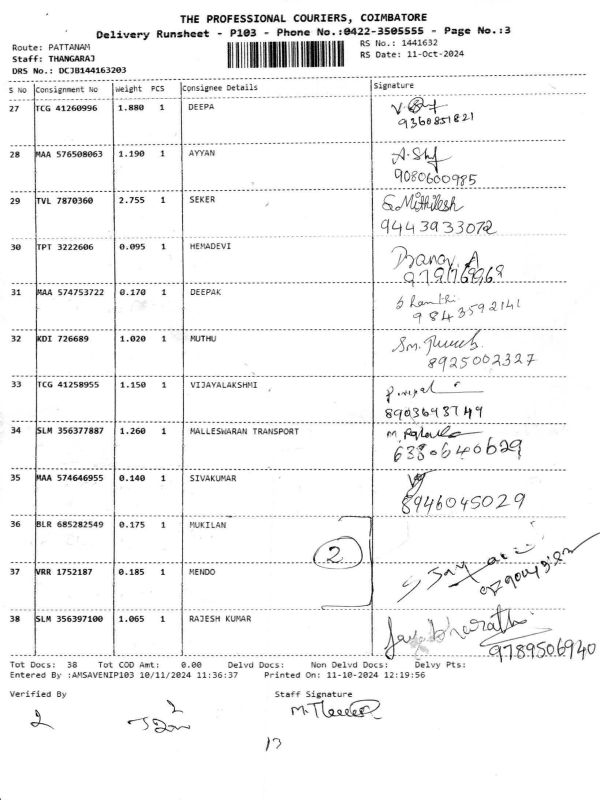 THE PROFESSIONAL COURIERS, COIMBATORE
Delivery Runsheet - P103 - Phone No.:0422-3505555 - Page No.:3
Route: PATTANAM
RS No.: 1441632
Staff: THANGARAJ
RS Date: 11-Oct-2024
DRS No.: DCJB144163203
S No Consignment No Weight PCS Consignee Details Signature
27 TCG 41260996 1.880 1 DEEPA
9360851821
28 MAA 576508063 1.190 1 AYYAN
9080600985
29 TVL 7870360 2.755 1 SEKER
G. Mithilesh
9443933072
30 TPT 3222606 0.095 1 HEMADEVI
31 MAA 574753722 0.170 1 DEEPAK
9843592141
32 KDI 726689 1.020 1 MUTHU
8925002327
33 TCG 41258955 1.150 1 VIJAYALAKSHMI
8903698749
34 SLM 356377887 1.260 1 MALLESWARAN TRANSPORT
6380640629
35 MAA 574646955 0.140 1 SIVAKUMAR
8946045029
36 BLR 685282549 0.175 1 MUKILAN
2
37 VRR 1752187 0.185 1 MENDO
38 SLM 356397100 1.065 1 RAJESH KUMAR
Jayabharathi
9789506940
Tot Docs: 38 Tot COD Amt: 0.00 Delvd Docs: Non Delvd Docs: Delvy Pts:
Entered By :AMSAVENIP103 10/11/2024 11:36:37 Printed On: 11-10-2024 12:19:56
Verified By Staff Signature
2